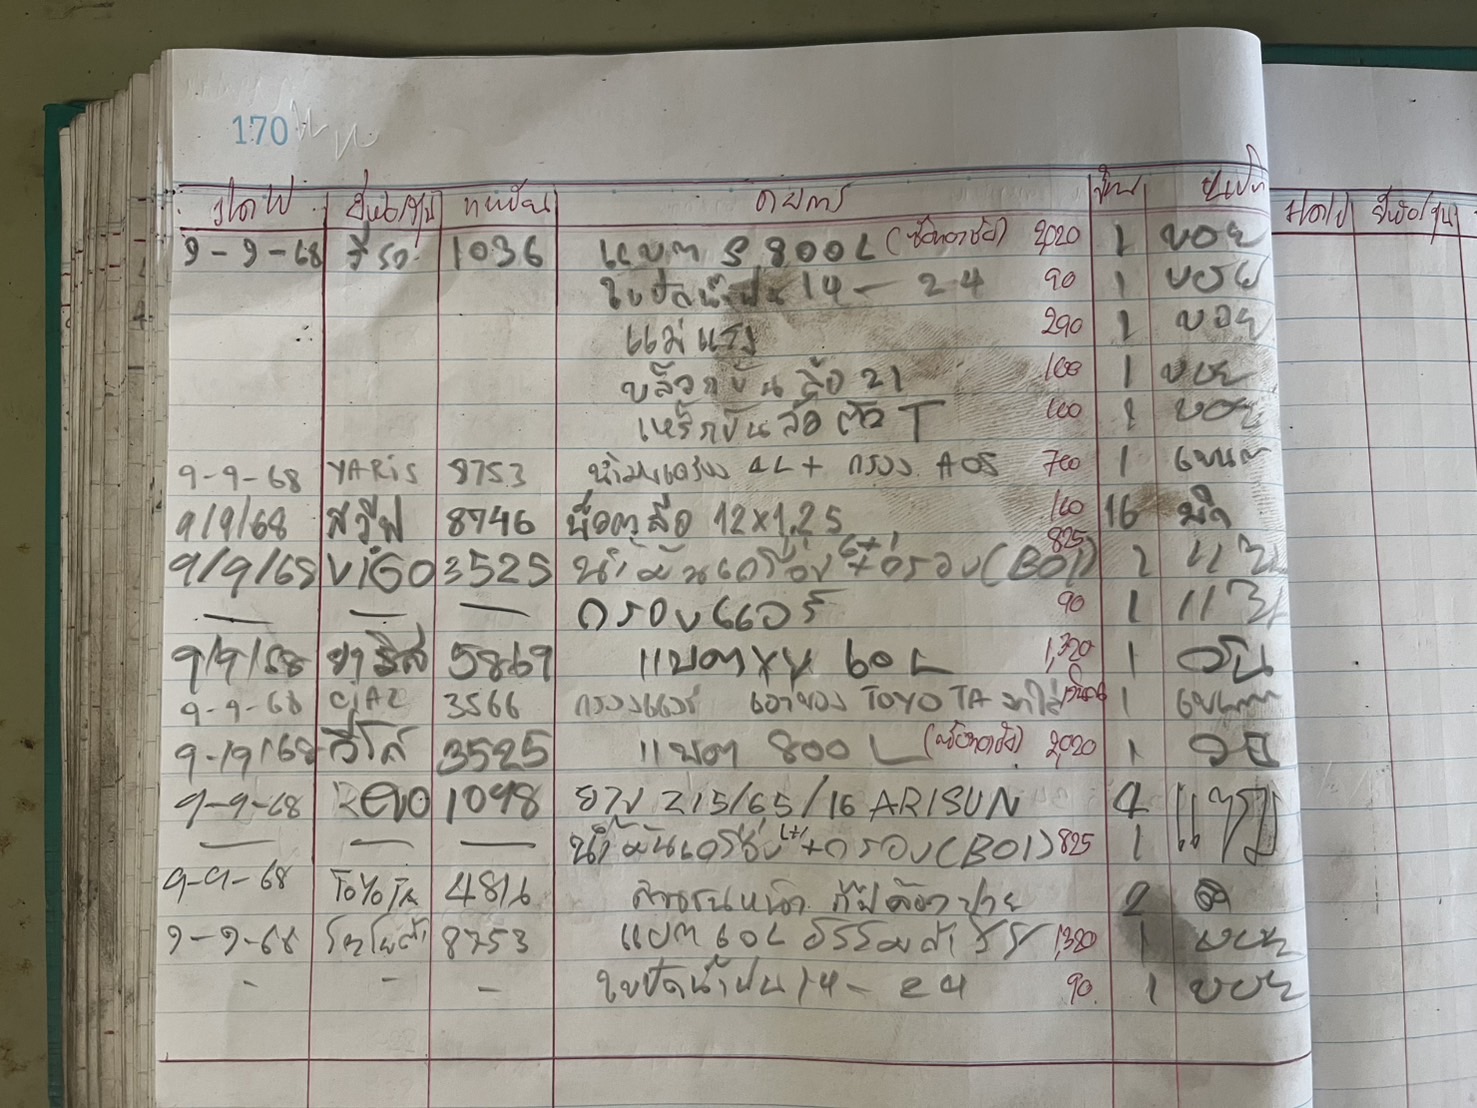 170
ว/ด/ป ยี่ห้อ/รุ่น ทะเบียน รายการ จำนวน
ว/ด/ป ยี่ห้อ/รุ่น
9-9-68 วีโก้ 1036 แบต S 800L 2,020 1 บอย
ใบปัดน้ำฝน 14-24 90 1 บอย
แม่แรง 290 1 บอย
บล็อกขันล้อ 21 100 1 บอย
เหล็กขันล้อ ตัว T 100 1 บอย
9-9-68 YARiS 8753 น้ำมันเครื่อง 4L + กรอง AOS 700 1
9/9/68 สวีฟ 8746 น็อตล้อ 12x1.25 160 16
9/9/68 ViGO 3525 น้ำมันเครื่อง 6+1 + กรอง (BO1) 825
— — — กรองแอร์ 90 1
9/9/68 ยาริส 5869 แบต 60 L 1,320 1
9-9-68 CiAZ 3566 กรองแอร์ เอาของ TOYOTA มาใส่ 1
9-9/68 วีโก้ 3525 แบต 800 L 2,020 1
9-9-68 Revo 1098 ยาง 215/65/16 ARISUN 4
— — — น้ำมันเครื่อง + กรอง (BO1) 825 1
9-9-68 ToYoTa 4816 2
9-9-68 โตโยต้า 8753 แบต 60L 1,380 1 บอย
- - - ใบปัดน้ำฝน 14-24 90 1 บอย